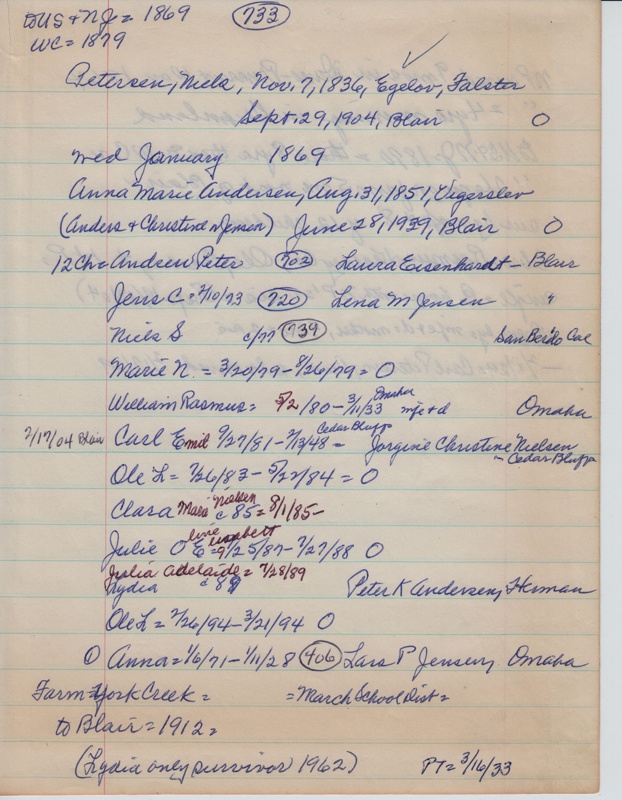 to US + NJ = 1869 733
WC = 1879
Petersen, Niels, Nov. 7, 1836, Egelov, Falster
Sept. 29, 1904, Blair O
wed January 1869
Anna Marie Andersen, Aug. 31, 1851, Vigerslev
(Anders + Christine n Jensen) June 28, 1939, Blair O
12 Ch = Andrew Peter 702 Laura Eisenhardt - Blair
Jens C = 2/10/73 720 Lena M Jensen "
Niels S c/77 739 San Berdo Cal
Marie N. = 3/20/79 - 8/26/79 = O
William Rasmus = 5/2/80 - 3/11/33 Omaha mfe + d Omaha
2/17/04 Blair Carl Emil 9/27/81 - 2/13/48 Cedar Bluffs = Jorgine Christine Nielsen - Cedar Bluffs
Ole L = 7/26/83 - 5/22/84 = O
Clara Mara Nielsen c 85 = 8/1/85 -
Julie O line Elisabett E = 9/25/87 - 7/27/88 O
Julia Adelaide = 7/28/89
Lydia c 89 Peter K Andersen, Herman
Ole L = 2/26/94 - 3/21/94 O
O Anna = 1/6/71 - 1/11/28 406 Lars P Jensen, Omaha
Farm = York Creek = = March School Dist =
to Blair = 1912 =
(Lydia only survivor 1962) PT = 3/16/33